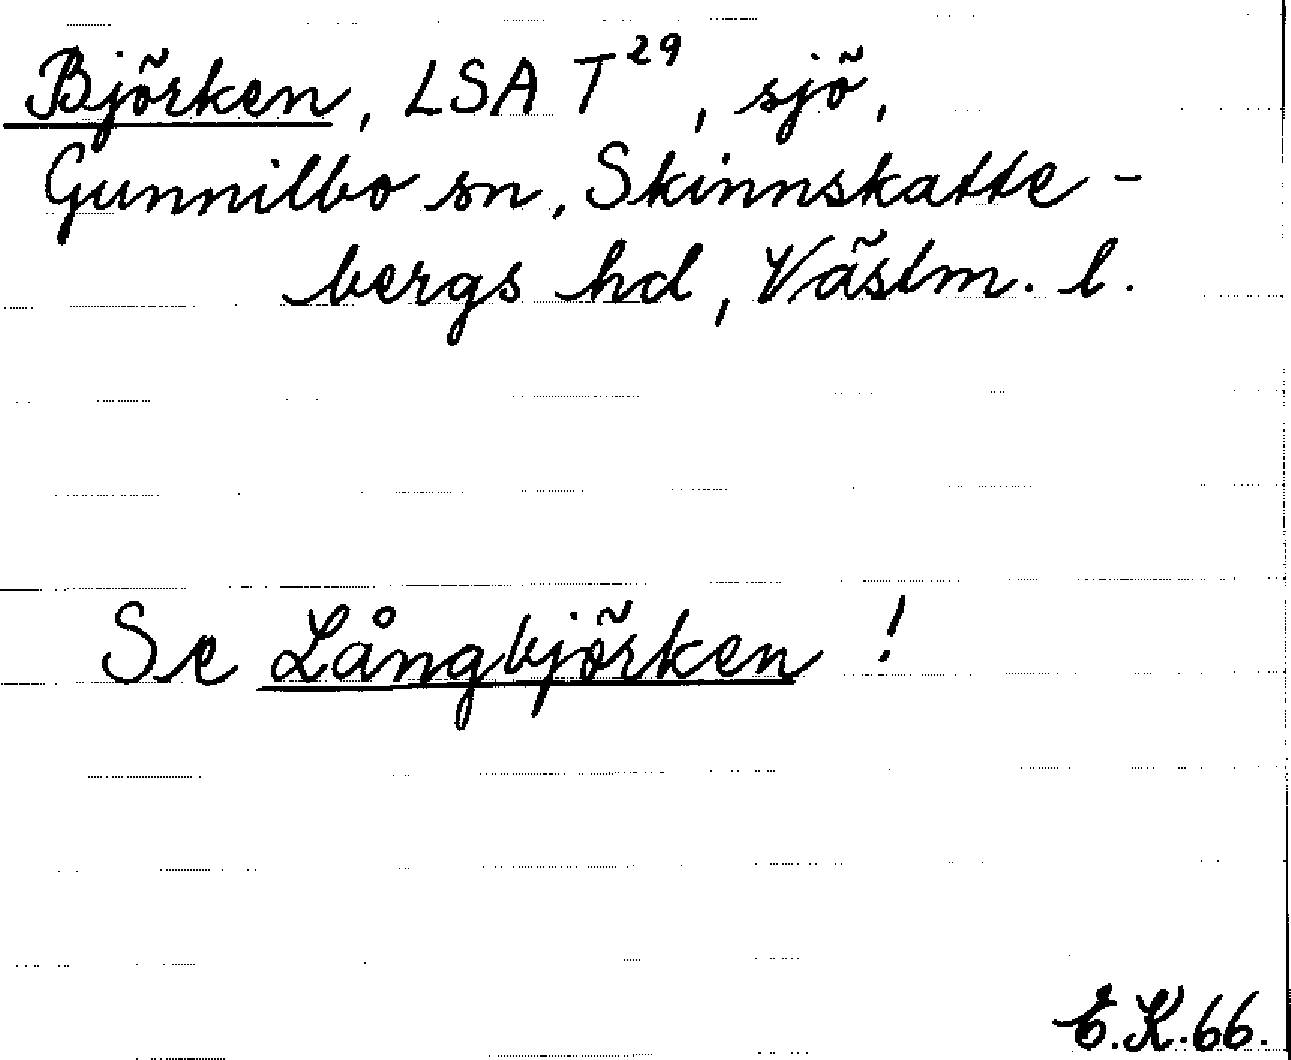 Björken, LSA T²⁹, sjö,
Gunnilbo sn, Skinnskatte-
bergs hd, Västm. l.
Se Långbjörken!
E.K.66.